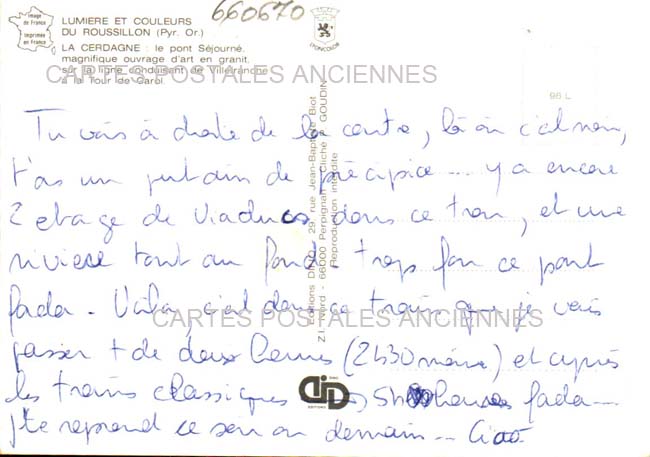 660670
Image de France
Imprimée en France
LUMIERE ET COULEURS
DU ROUSSILLON (Pyr. Or.)
LA CERDAGNE : le pont Séjourné,
magnifique ouvrage d'art en granit,
sur la ligne conduisant de Villefranche
à la Tour de Carol.
LYONCOLOR
CARTES POSTALES ANCIENNES
96 L
Tu vois à droite de la carte, là où c'est noir,
t'as un putain de précipice ... y a encore
2 etage de viaducs dans ce trou, et une
riviere tout au fond trop fou ce pont
fada. Voila, c'est dans ce train que je vais
passer + de deux heures (2h30 même) et après
les trains classiques 5h heures fada ...
j'te reprend ce soir ou demain ... Ciao
CARTES POSTALES ANCIENNES
Editions DINO, 29, rue Jean-Baptiste Biot
Z.I. Nord - 66000 Perpignan - Cliché GOUDIN
Reproduction interdite
DINO
EDITIONS